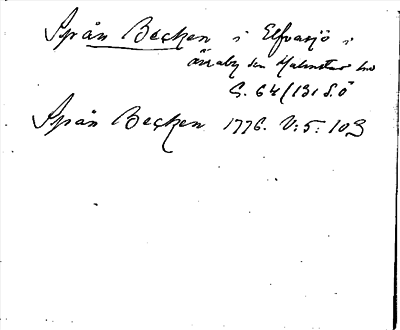 Språn Becken i Elfvasjö i
Önaby sn Halmstad hd
S. 64/131 S.Ö
Språn Becken 1776. V:5:103